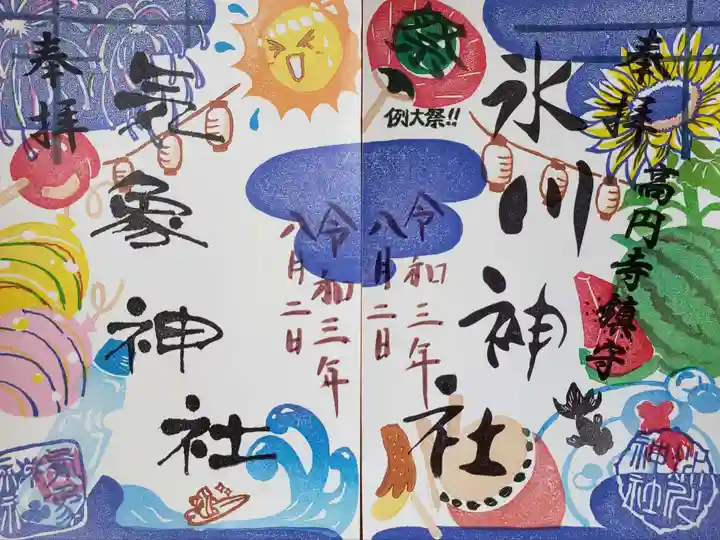 奉拝
高円寺鎮守
氷川神社
祭
例大祭!!
令和三年
八月二日
奉拝
気象神社
令和三年
八月二日
氷川神社
気象神社